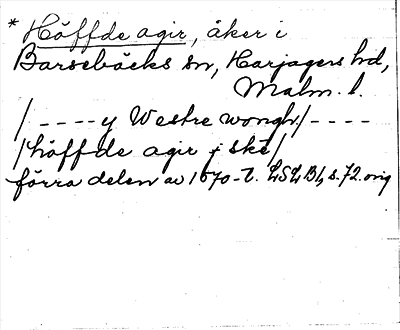 * Höffde agir, åker i
Barsebäcks sn, Harjagers hd,
Malm. l.
/ - - - - y Westre wongh/ - - - -
/höffde agir j ske/
förra delen av 1670-t. LSLB1, s. 72. orig